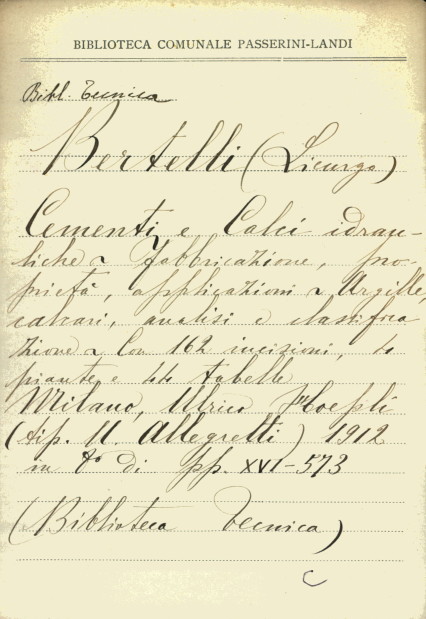 BIBLIOTECA COMUNALE PASSERINI-LANDI
Bibl. Tecnica
Bertelli (Licurgo)
Cementi e Calci idrau-
liche ~ Fabbricazione, pro-
prietà, applicazioni ~ Argille,
calcari, analisi e classifica
zione ~ Con 162 incisioni,
piante e 44 tabelle
Milano, Ulrico Hoepli
(tip. U. Allegretti) 1912
in 8° di pp. XVI-573
(Biblioteca Tecnica)
C